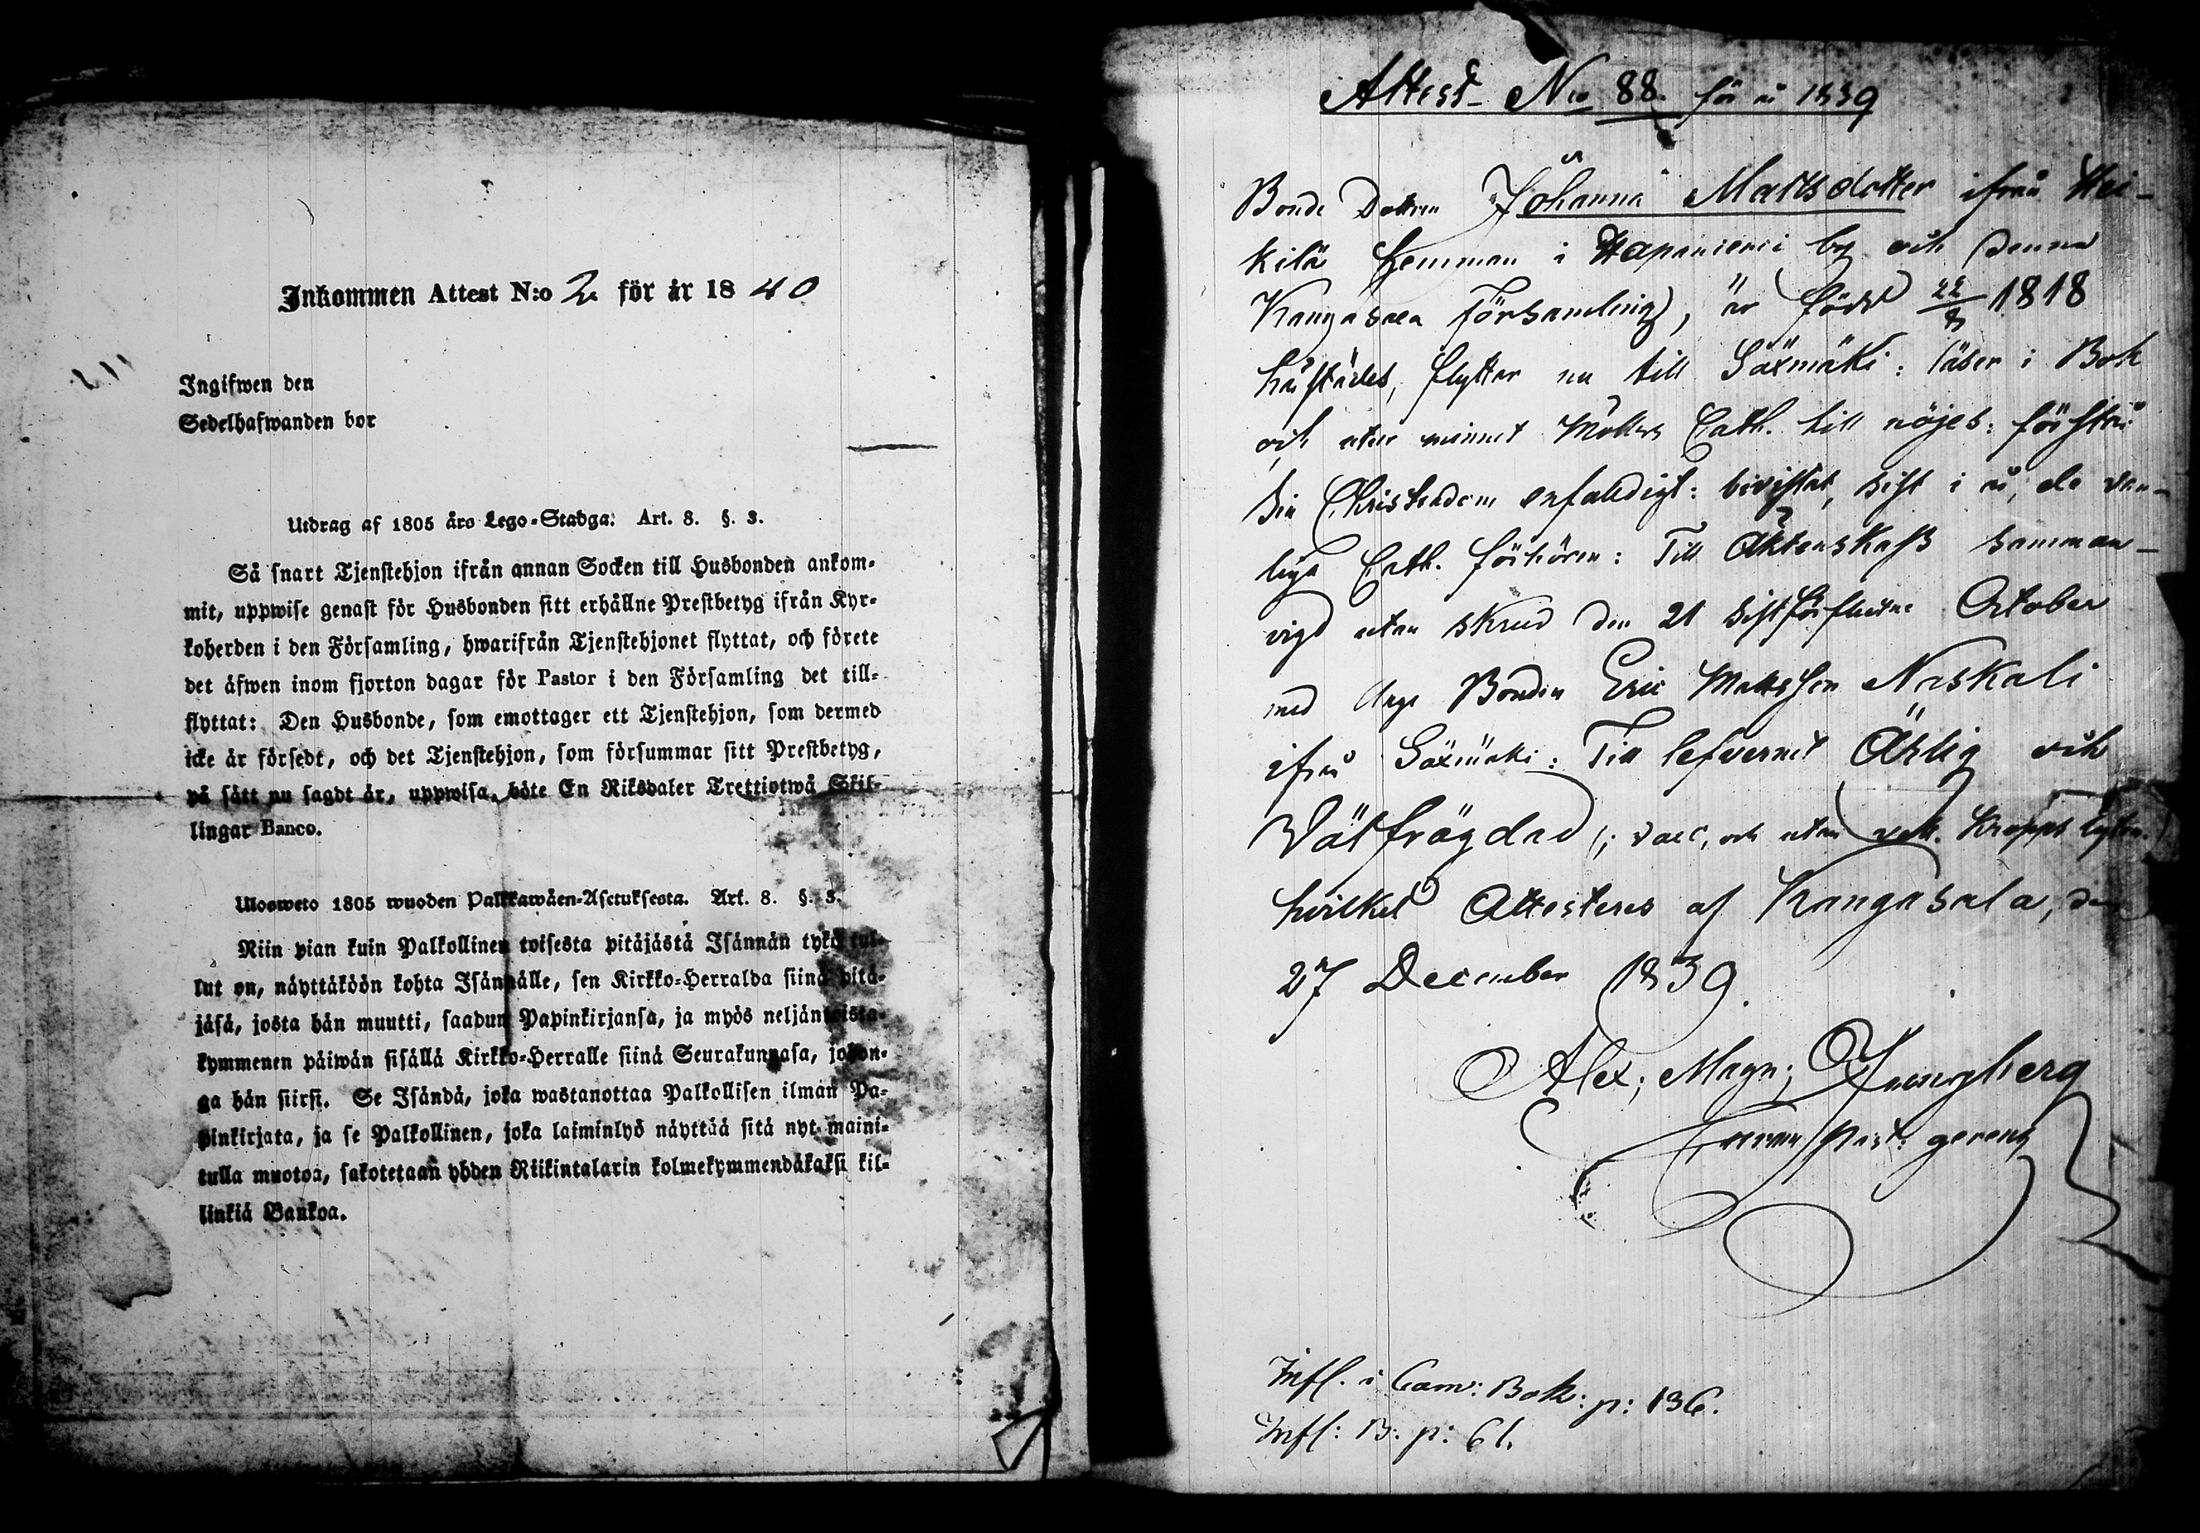 Inkommen Attest N:o 2 för år 1840
Ingifwen den
Sedelhafwanden bor
Utdrag af 1805 års Lego-Stadga: Art. 8. §. 3.
Så snart Tjenstehjon ifrån annan Socken till Husbonden ankom-
mit, uppwise genast för Husbonden sitt erhållne Prestbetyg ifrån Kyr-
koherden i den Församling, hwarifrån Tjenstehjonet flyttat, och förete
det äfwen inom fjorton dagar för Pastor i den Församling det till-
flyttat: Den Husbonde, som emottager ett Tjenstehjon, som dermed
icke är försedt, och det Tjenstehjon, som försummar sitt Prestbetyg,
på sätt nu sagdt är, uppwisa, böte En Riksdaler Trettiotwå Skil-
lingar Banco.
Ulosweto 1805 wuoden Palkkawäen-Asetuksesta. Art. 8. §. 3.
Niin pian kuin Palkollinen toisesta pitäjästä Isännän tykö tul-
lut on, näyttäköön kohta Isännälle, sen Kirkko-Herralda siinä pitä-
jäsä, josta hän muutti, saadun Papinkirjansa, ja myös neljäntoista-
kymmenen päiwän sisällä Kirkko-Herralle siinä Seurakunnasa, johon-
ga hän siirsi. Se Isändä, joka wastanottaa Palkollisen ilman Pa-
pinkirjata, ja se Palkollinen, joka laiminlyö näyttää sitä nyt maini-
tulla muotoa, sakotetaan yhden Riikintalarin kolmekymmendäkaksi kil-
linkiä Bankoa.
Attest No 88. för år 1839
Bonde Dottren Johanna Mattsdotter ifrån Hei-
kilä hemman i Hapaniemi by och denna
Kangasala Församling, är född 22/8 1818
härstädes, flyttar nu till Säxmäki: läser i Bok
och utur minnet Möllers Cath. till nöjes: förstår
sin Christendom enfaldigt: bevistat, sist i år, de van-
liga Cath. förhören: Till Äktenskaps samman-
vigd utan skrud den 21 sistförflutne October
med Unge Bonden Eric Mattsson Naskali
ifrån Säxmäki: Till lefvernet Ärlig och
Välfrägdad; vacc, och utan vett. kropps lyten.
hvilket Attesteres af Kangasala, den
27 December 1839.
Alex; Magn;
past: gerens
Infl. i Com: Bok: p: 136.
Infl: B. p: 61.